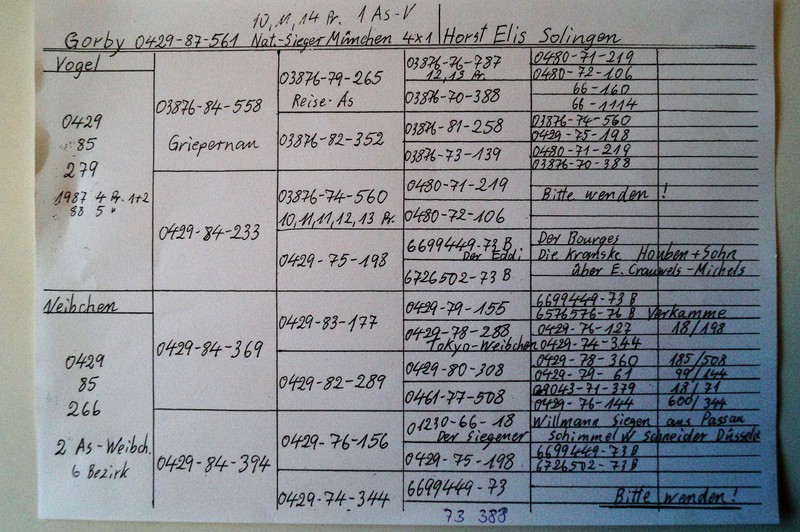 10, 11, 14 Pr. 1 As-V
Gorby 0429-87-561 Nat.-Sieger München 4x1 Horst Elis Solingen
Vogel
0429
85
279
1987 4 Pr. 1+2
88 5 "
03876-84-558
Griepernau
0429-84-233
03876-79-265
Reise-As
03876-82-352
03876-74-560
10,11,11,12,13 Pr.
0429-75-198
03876-76-787
12,13 Pr.
03876-70-388
03876-81-258
03876-73-139
0480-71-219
0480-72-106
6699449-73 B
Der Eddi
6726502-73 B
0480-71-219
0480-72-106
66-160
66-1114
03876-74-560
0429-75-198
0480-71-219
03876-70-388
Bitte wenden !
Der Bourges
Die Kramske Houben + Sohn
über E. Crauwels-Michels
Weibchen
0429
85
266
2 As-Weibch.
6 Bezirk
0429-84-369
0429-84-394
0429-83-177
0429-82-289
0429-76-156
0429-74-344
0429-79-155
0429-78-288
Tokyo-Weibchen
0429-80-308
0461-77-508
01230-66-18
Der Siegener
0429-75-198
6699449-73
73 388
6699449-73 B
6576576-76 B Verkamme
0429-76-127 18/198
0429-74-344
0429-78-360 185/508
0429-79-61 99/144
09043-71-379 18/71
0429-76-144 600/344
Willmann Siegen aus Passau
Schimmel W Schneider Düsseld
6699449-73B
6726502-73B
Bitte wenden !